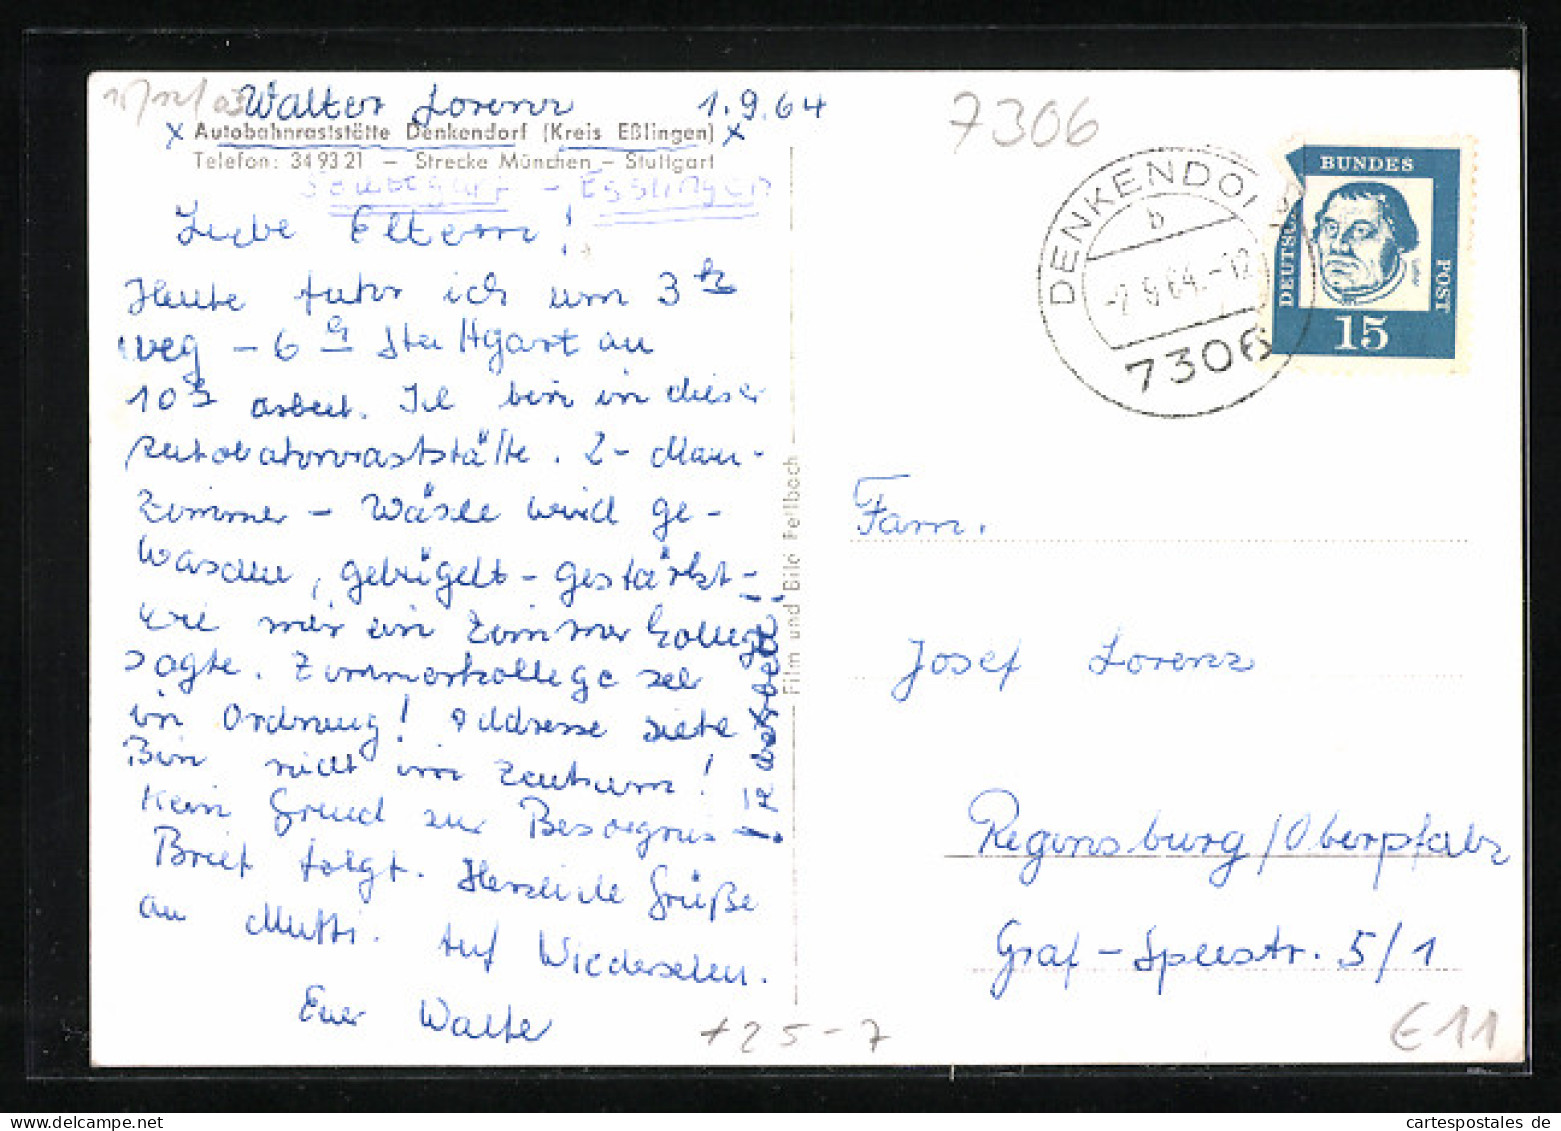 Walter Lorenz 1.9.64
x Autobahnraststätte Denkendorf (Kreis Eßlingen) x
Telefon: 34 93 21 – Strecke München – Stuttgart
Stuttgart - Esslingen
Liebe Eltern!
Heute fuhr ich um 3
weg - 6 Stuttgart an
10 Arbeit. Ich bin in dieser
Autobahnraststätte. 2-Mann-
zimmer - Wäsche wird ge-
waschen, gebügelt - gestärkt -
wie mir ein Zimmerkollege
sagte. Zimmerkollege sehr
in Ordnung! Addresse siehe
Bin nicht im Zentrum!
Kein Grund zur Besorgnis -
Brief folgt. Herzliche Grüße
an Mutti. Auf Wiedersehen.
Euer Walter
Film und Bild Fellbach
7306
DENKENDORF
b
-2.9.64.-12
7306
DEUTSCHE
BUNDES
POST
15
Fam.
Josef Lorenz
Regensburg/Oberpfalz
Graf-Speestr. 5/1
+25-7
€11
cartespostales de